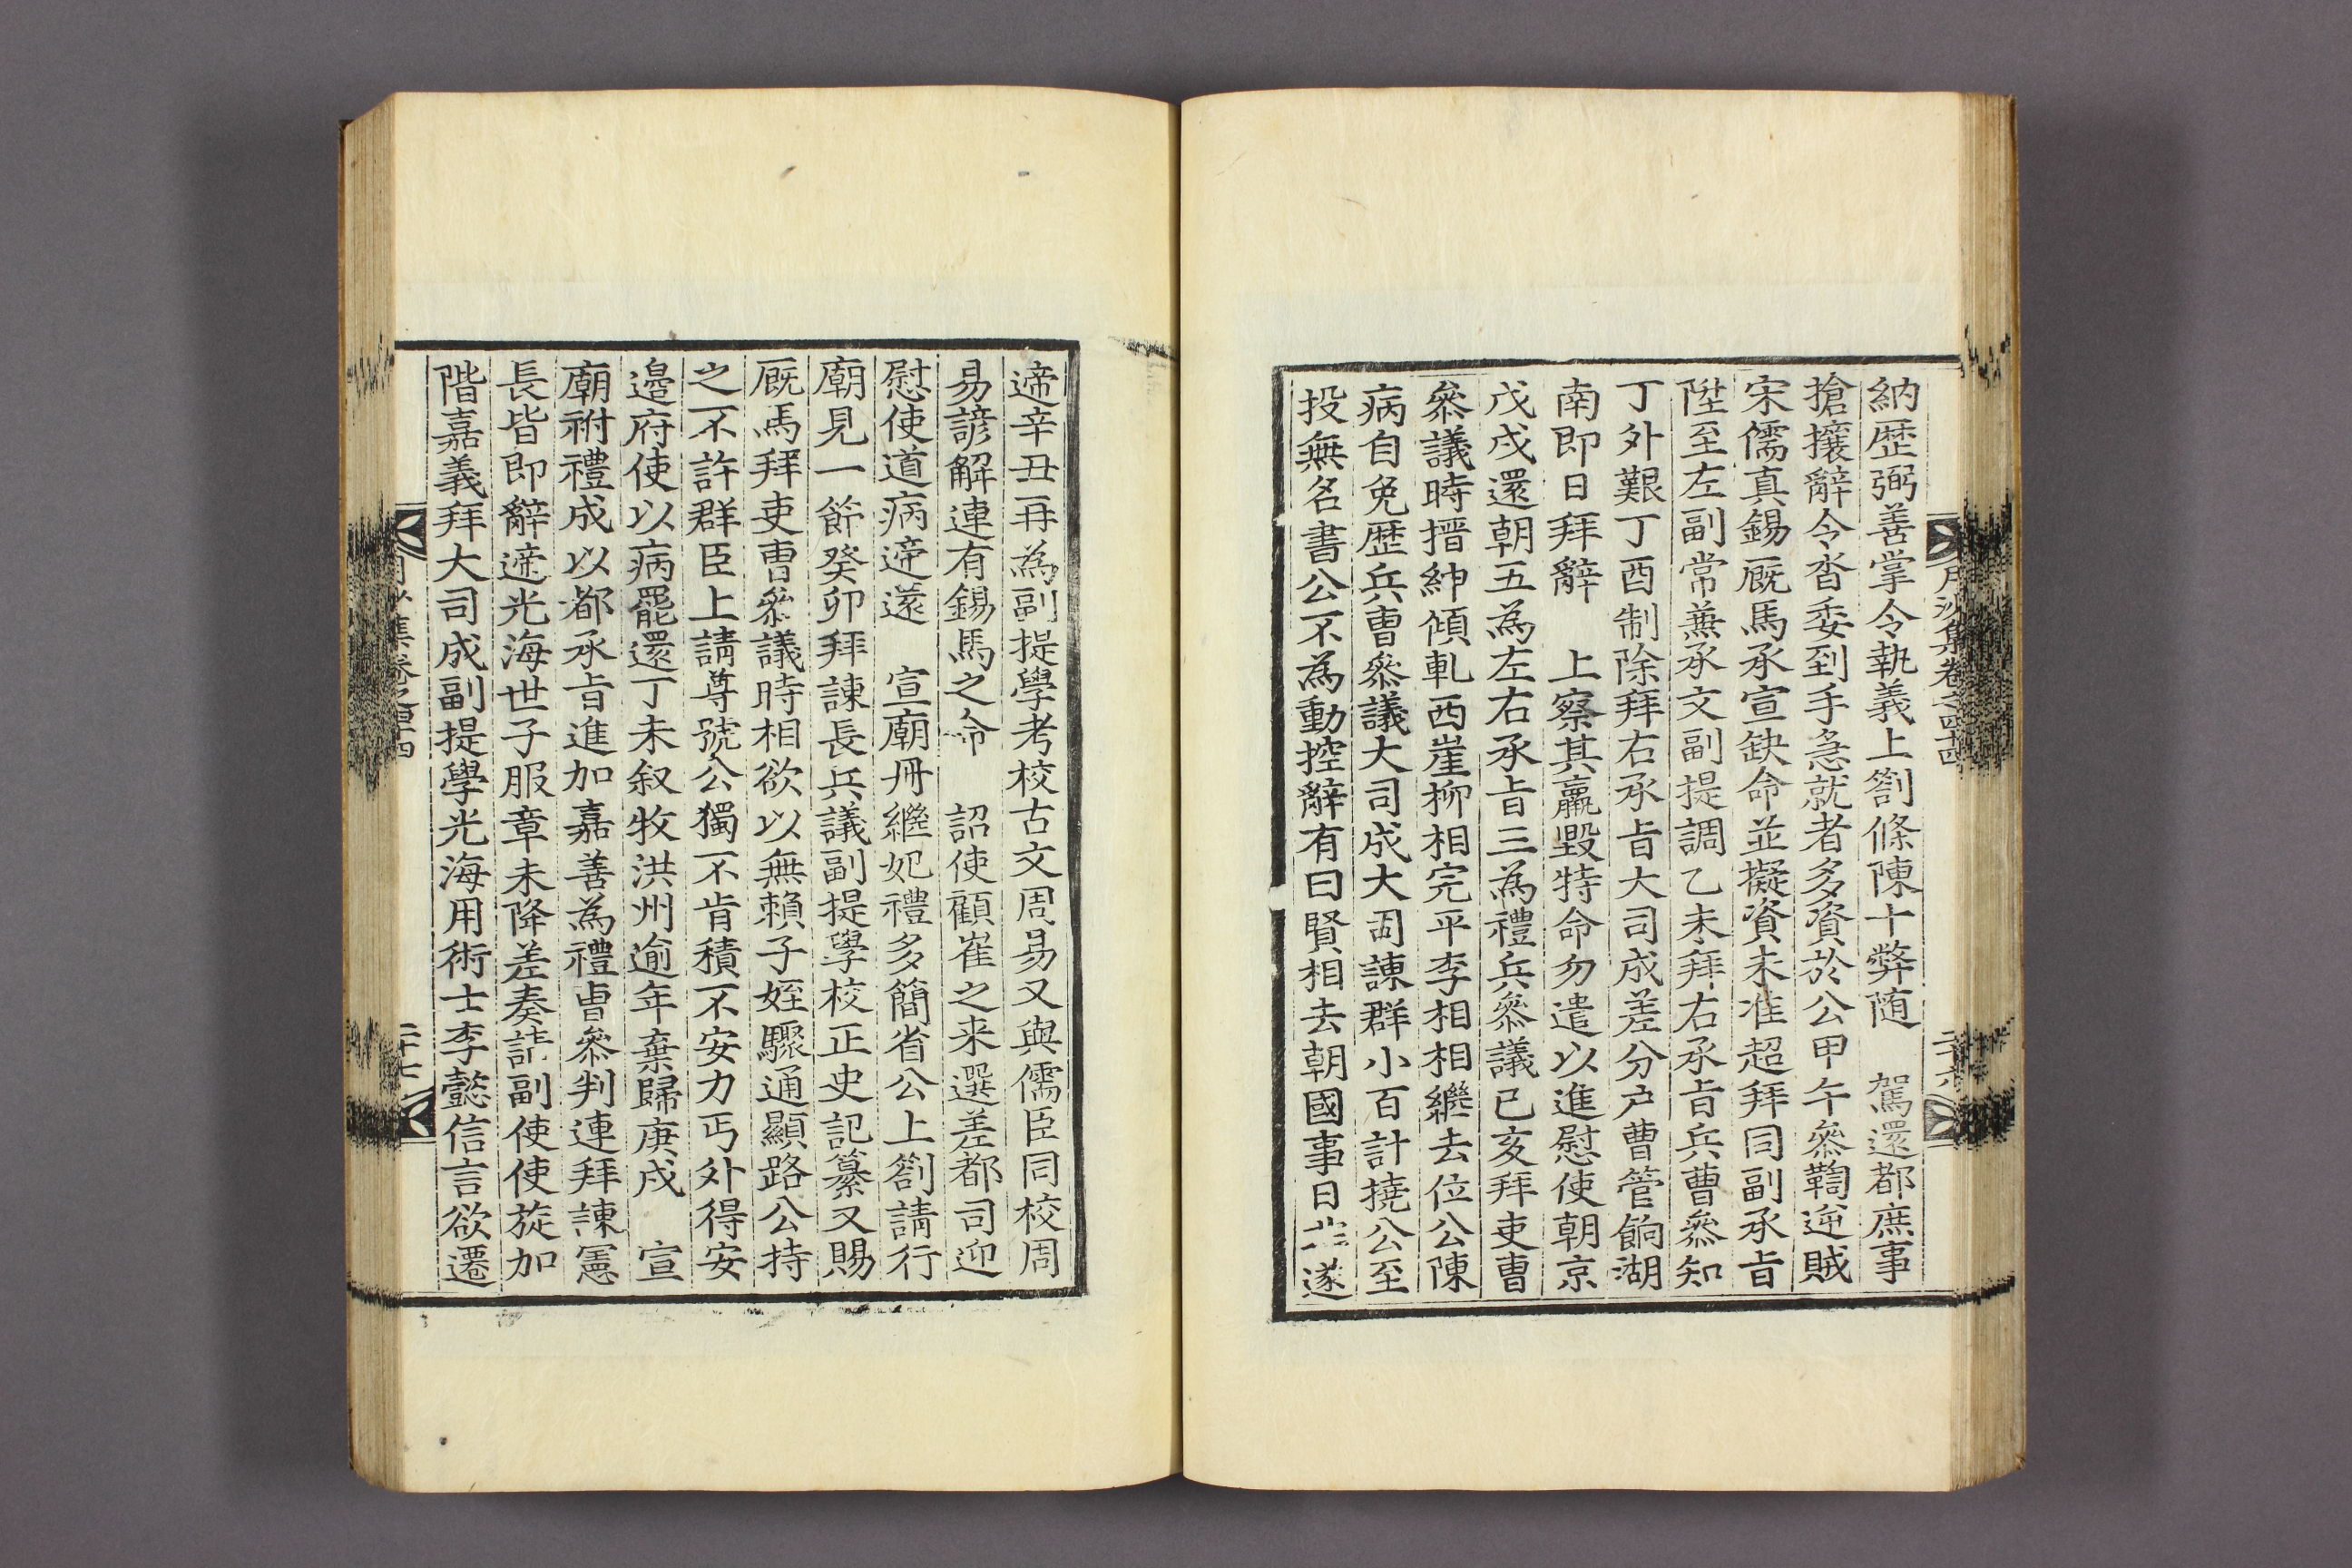 月沙集卷之四十四
二十六
納歷弼善掌令執義上劄條陳十弊随　駕還都庶事
搶攘辭令沓委到手急就者多資於公甲午叅鞫逆賊
宋儒真錫廐馬承宣缺命並擬資未准超拜同副承旨
陞至左副常兼承文副提調乙未拜右承旨兵曹叅知
丁外艱丁酉制除拜右承旨大司成差分户曹管餉湖
南即日拜辭　上察其羸毀特命勿遣以進慰使朝京
戊戌還朝五為左右承旨三為禮兵叅議己亥拜吏曹
叅議時搢紳傾軋西崖柳相完平李相相繼去位公陳
病自免歷兵曹叅議大司成大司諫群小百計撓公至
投無名書公不為動控辭有曰賢相去朝國事日非遂
遆辛丑再為副提學考校古文周易又與儒臣同校周
易諺解連有錫馬之命　詔使顧崔之来選差都司迎
慰使道病遆還　宣廟冊繼妃禮多簡省公上劄請行
廟見一節癸卯拜諫長兵議副提學校正史記纂又賜
廐馬拜吏曹叅議時相欲以無賴子姪驟通顯路公持
之不許群臣上請尊號公獨不肯積不安力丐外得安
邊府使以病罷還丁未叙牧洪州逾年棄歸庚戌　宣
廟祔禮成以都承旨進加嘉善為禮曹叅判連拜諫憲
長皆即辭遆光海世子服章未降差奏請副使使旋加
階嘉義拜大司成副提學光海用術士李懿信言欲遷
集卷之四十四
二十七